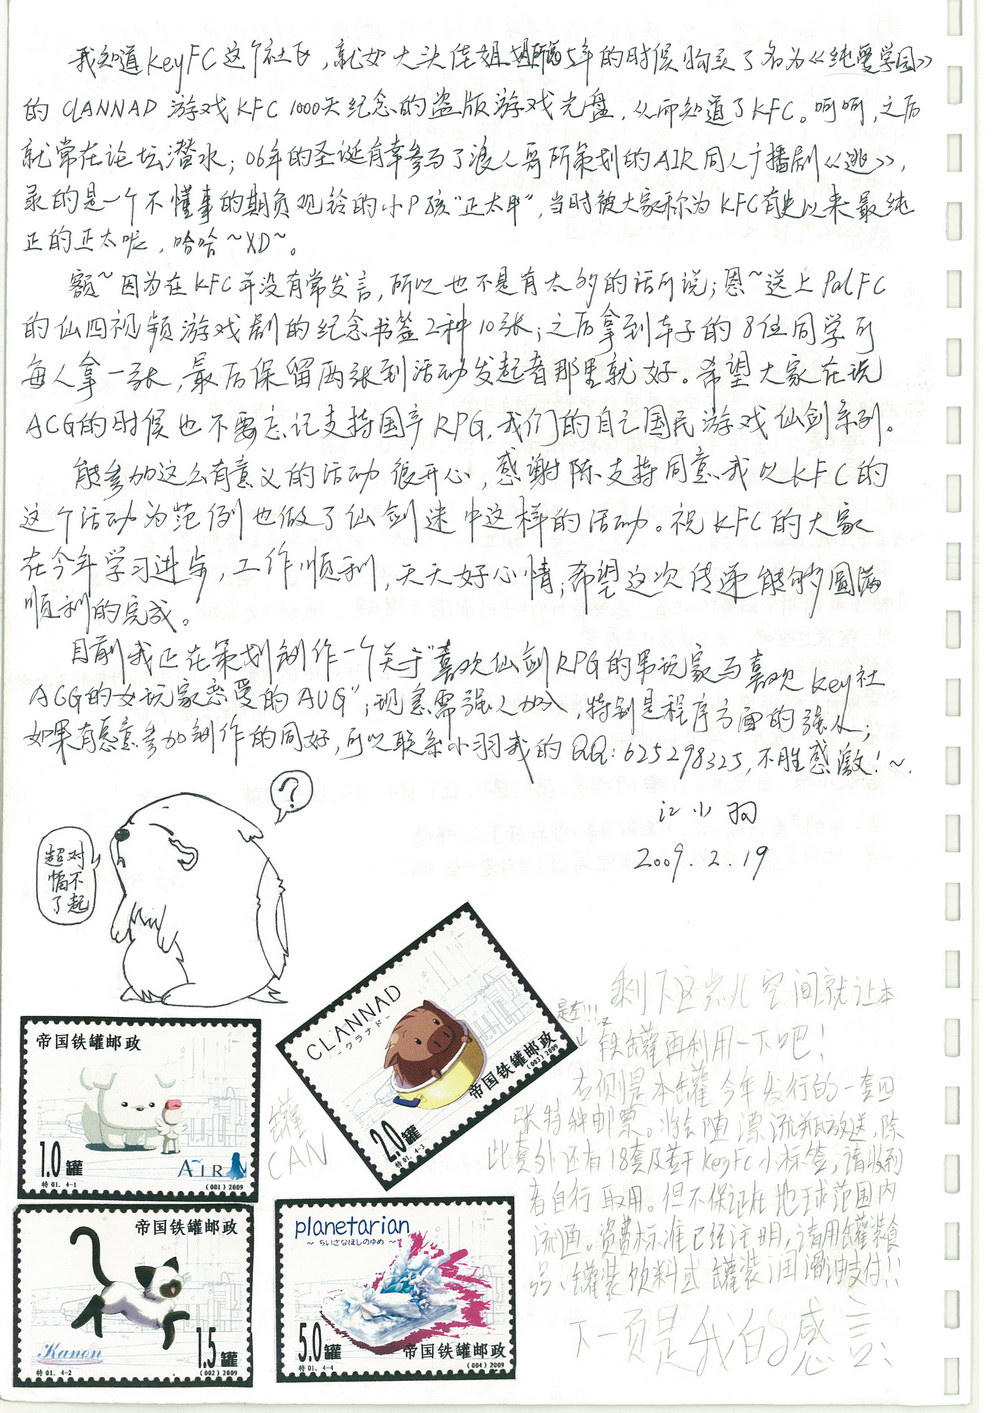 我知道KeyFC这个社区，就如大头佳姐姐所言5年的时候购买了名为《纯爱学园》
的CLANNAD游戏KFC 1000天纪念的盗版游戏光盘，从而知道了KFC。呵呵，之后
就常在论坛潜水；06年的圣诞有幸参与了浪人哥所策划的AIR同人广播剧《逃》，
录的是一个不懂事的期负观铃的小P孩“正太甲”，当时被大家称为KFC有史以来最纯
正的正太呢，哈哈~XD~。
额~因为在KFC并没有常发言，所以也不是有太多的话所说；恩~送上PalFC
的仙四视频游戏剧的纪念书签2种10张；之后拿到本子的8位同学可
每人拿一张，最后保留两张到活动发起者那里就好。希望大家在说
ACG的时候也不要忘记支持国产RPG，我们的自己国民游戏仙剑系列。
能参加这么有意义的活动很开心，感谢陈支持同意我以KFC的
这个活动为范例也做了仙剑迷中这样的活动。祝KFC的大家
在今年学习进步，工作顺利，天天好心情；希望这次传递能够圆满
顺利的完成。
目前我正在策划制作一个关于“喜欢仙剑RPG的男玩家与喜欢Key社
ACG的女玩家恋爱的AVG”；现急需强人加入，特别是程序方面的强人；
如果有愿意参加制作的同好，可以联系小羽我的QQ：625298325，不胜感激！~.
江小羽
2009.2.19
?
超对
惰不
了起
剩下这点儿空间就让本
是空!!!
罐再利用一下吧！
右侧是本罐今年发行的一套四
张特种邮票。将会随漂流瓶放送，除
此真外还有18套及若干KeyFC小标签，请收到
者自行取用。但不保证在地球范围内
流通。资费标准已经注明，请用罐装食
品、罐装饮料或罐装润滑油支付!!
下一页是我的感言
罐
CAN
帝国铁罐邮政
1.0罐
AIR
特01. 4-1
(001)2009
CLANNAD
-クラナド-
帝国铁罐邮政
2.0罐
特01. 4-3
(003)2009
帝国铁罐邮政
Kanon
1.5罐
特01. 4-2
(002)2009
planetarian
～ちいさなほしのゆめ～
5.0罐
帝国铁罐邮政
特01. 4-4
(004)2009